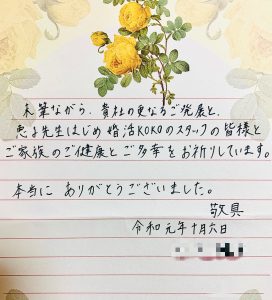 末筆ながら、貴社の更なるご発展と、
恵子先生はじめ婚活KOKOのスタッフの皆様と
ご家族のご健康とご多幸をお祈りしています。
本当に ありがとうございました。
敬具
令和元年十月六日